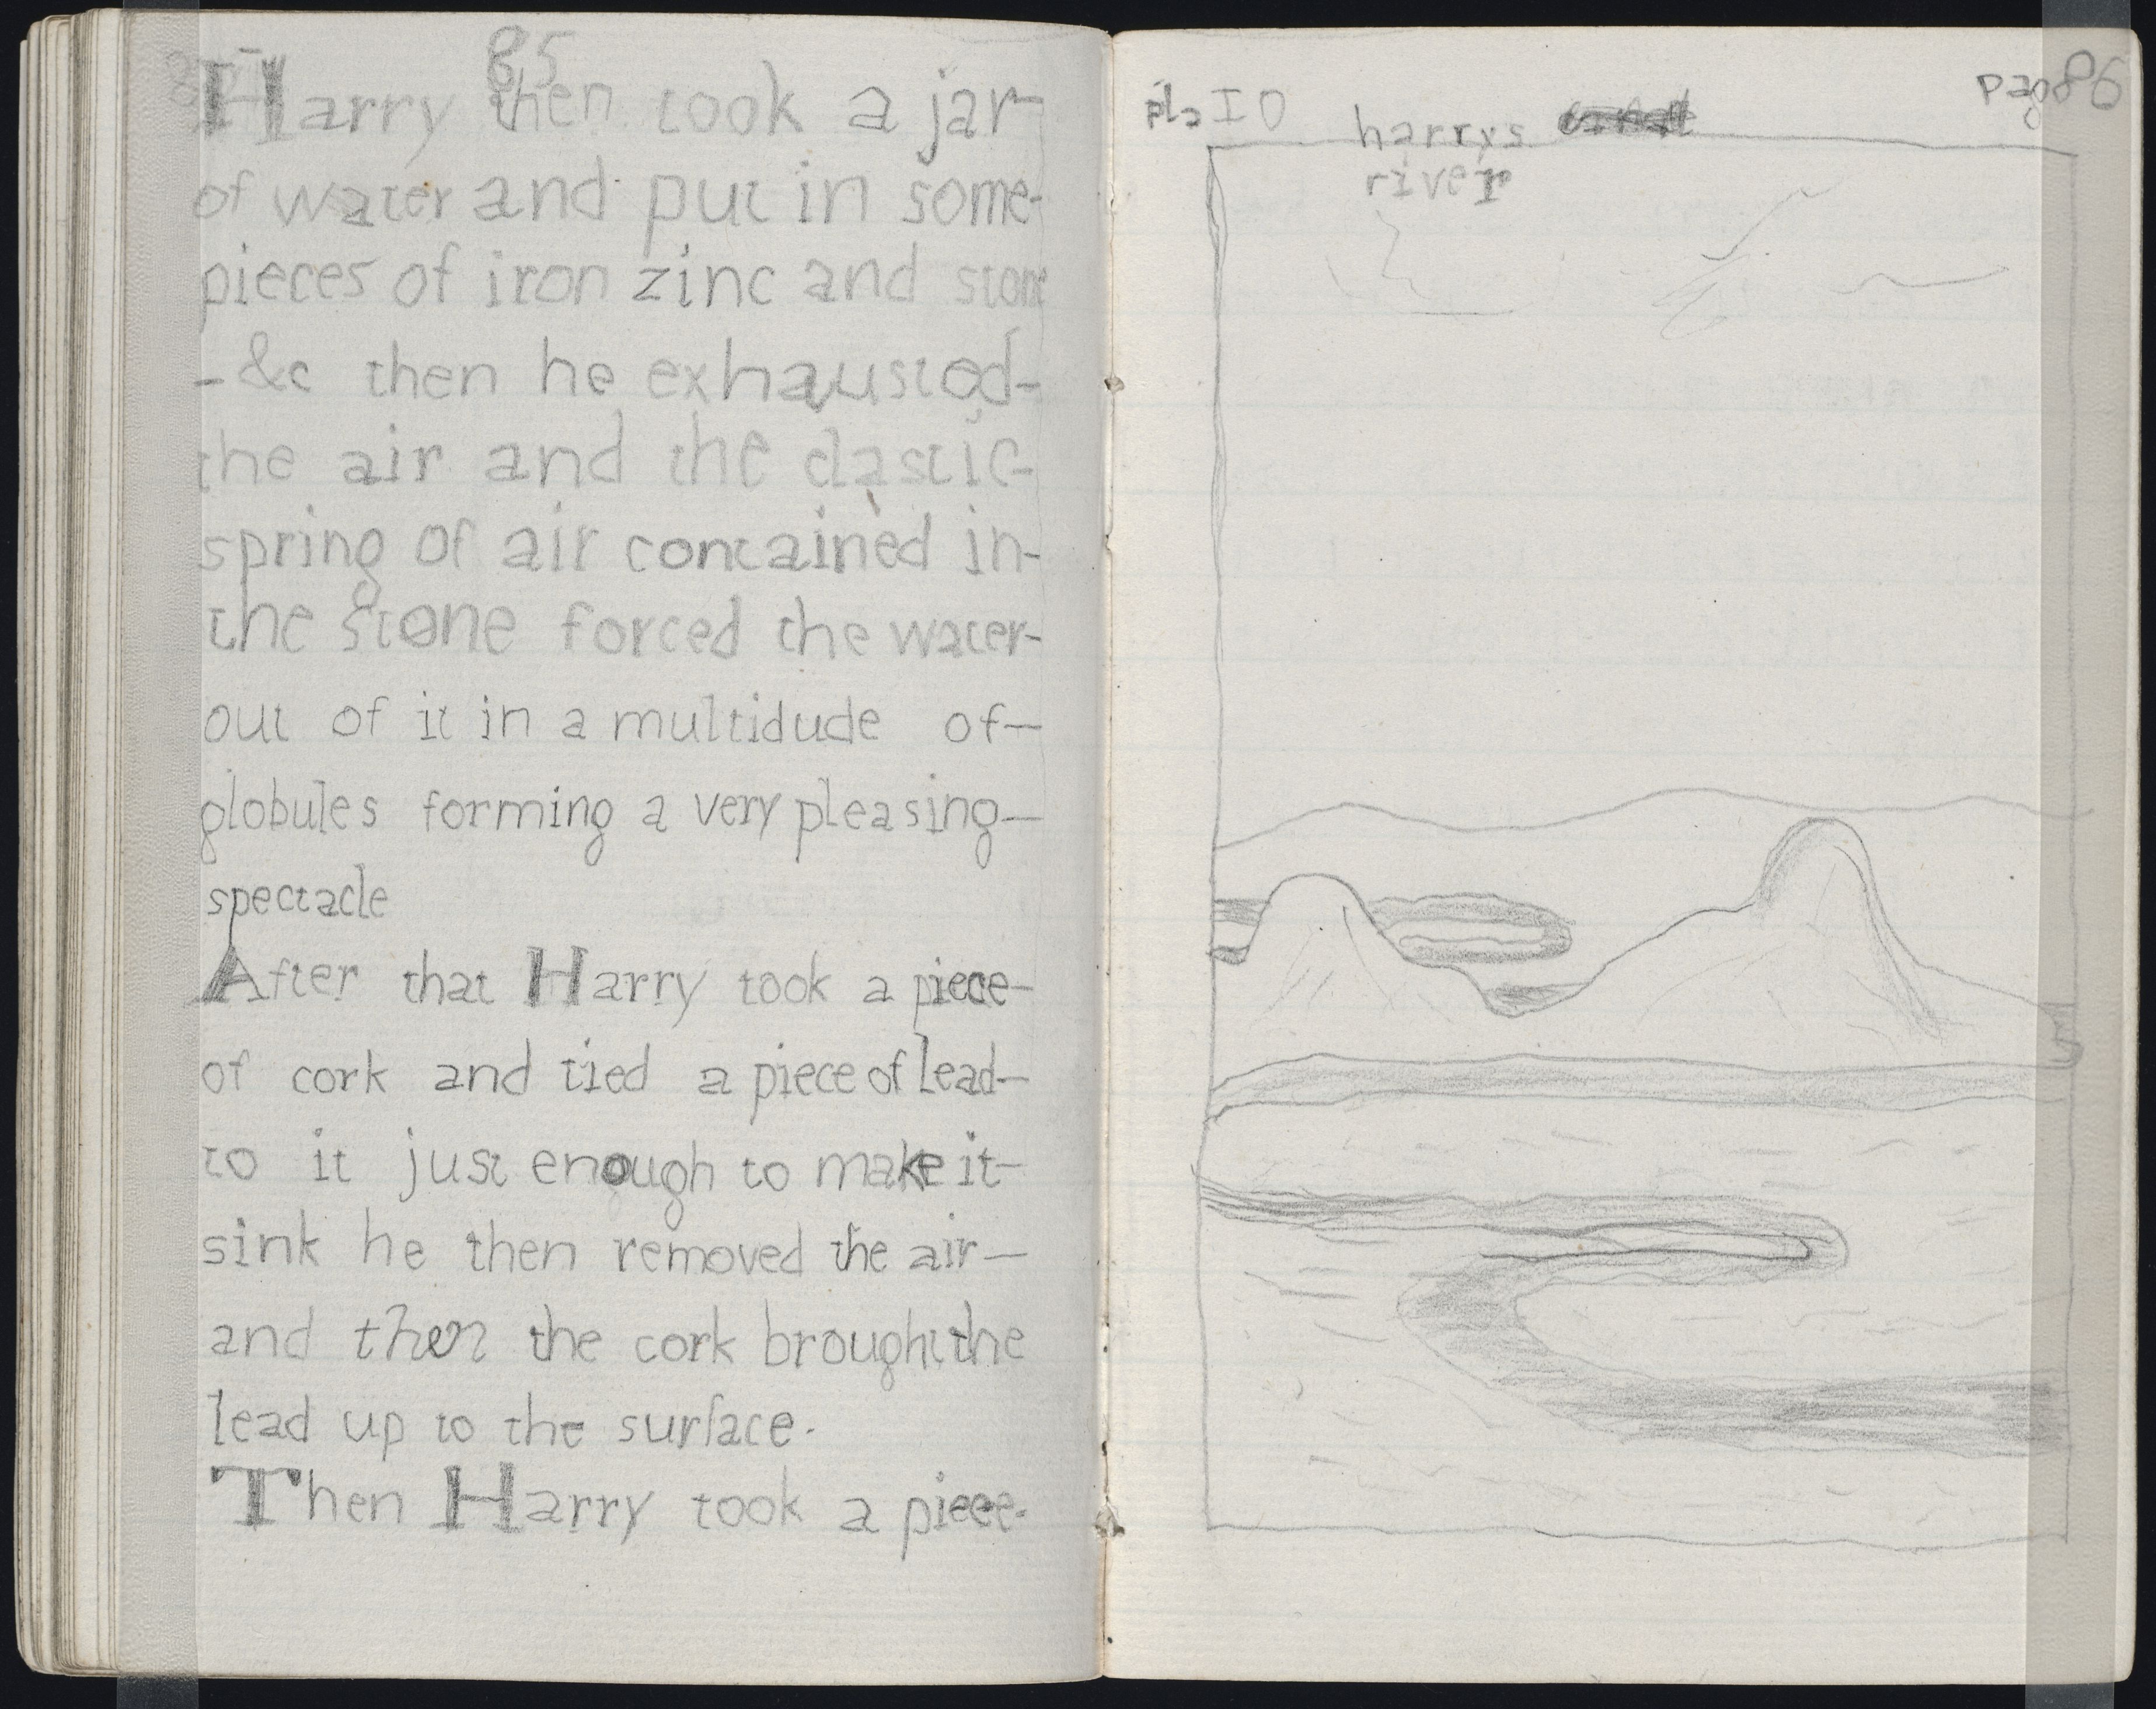 85
Harry then took a jar-
of water and put in some-
pieces of iron zinc and stone
-&c then he exhausted-
the air and the elastic-
spring of air contained in-
the stone forced the water-
out of it in a multidude of-
globules forming a very pleasing-
spectacle
After that Harry took a piece-
of cork and tied a piece of lead-
to it just enough to make it-
sink he then removed the air-
and then the cork brought the
lead up to the surface.
Then Harry took a piece-
pla 10
pag 86
harrys
river